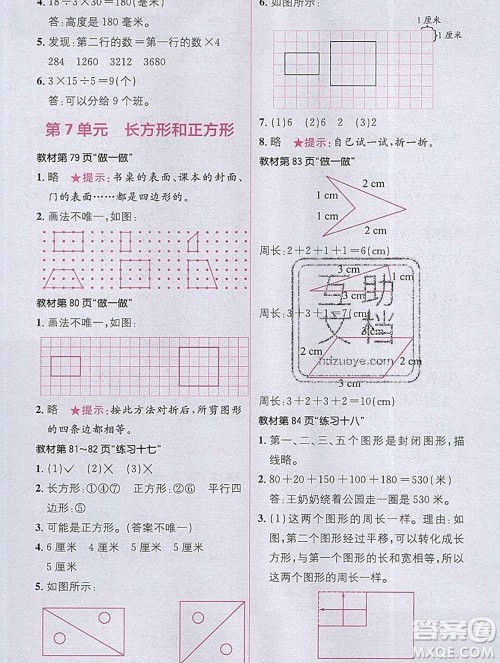 4. 18÷3×30=180(毫米)
答:高度是 180 毫米。
5. 发现:第二行的数=第一行的数×4
284 1260 3212 3680
6. 3×15÷5=9(个)
答:可以分给 9 个班。
第 7 单元 长方形和正方形
教材第 79 页“做一做”
1. 略 ★提示:书桌的表面、课本的封面、
门的表面……都是四边形的。
2. 画法不唯一,如图:
教材第 80 页“做一做”
1. 画法不唯一,如图:
2. 略 ★提示:按此方法对折后,所剪图形
的四条边都相等。
教材第 81~82 页“练习十七”
1. (1)√ (2)× (3)√
2. 长方形:①④⑦ 正方形:② 平行四
边形:⑤
3. 可能是正方形。(答案不唯一)
4. 6 厘米 4 厘米 5 厘米 5 厘米
5. 如图所示:
6. 如图所示:
1 厘米
1 厘米
7. (1)6 (2)2 (3)4
8. 略 ★提示:自己试一试,折一折。
教材第 83 页“做一做”
2 cm
1 cm
1 cm
2 cm
周长:2+2+1+1=6(cm)
3 cm
1 cm
3 cm
周长:3+3+1=7(cm)
3 cm
2 cm
2 cm
3 cm
周长:3+2+3+2=10(cm)
教材第 84 页“练习十八”
1. 第一、二、三、五个图形是封闭图形,描
线略。
2. 80+20+150+100+180=530(米)
答:王奶奶绕着公园走一圈是 530 米。
3. (1)这两个图形的周长一样。理由:如
图,两个图形经过平移,可以转化成长
方形,并且长方形的长和宽相等,所
以这两个图形的周长一样。
互助
文档
hdzuoye.com
答案圈
MXQE.COM